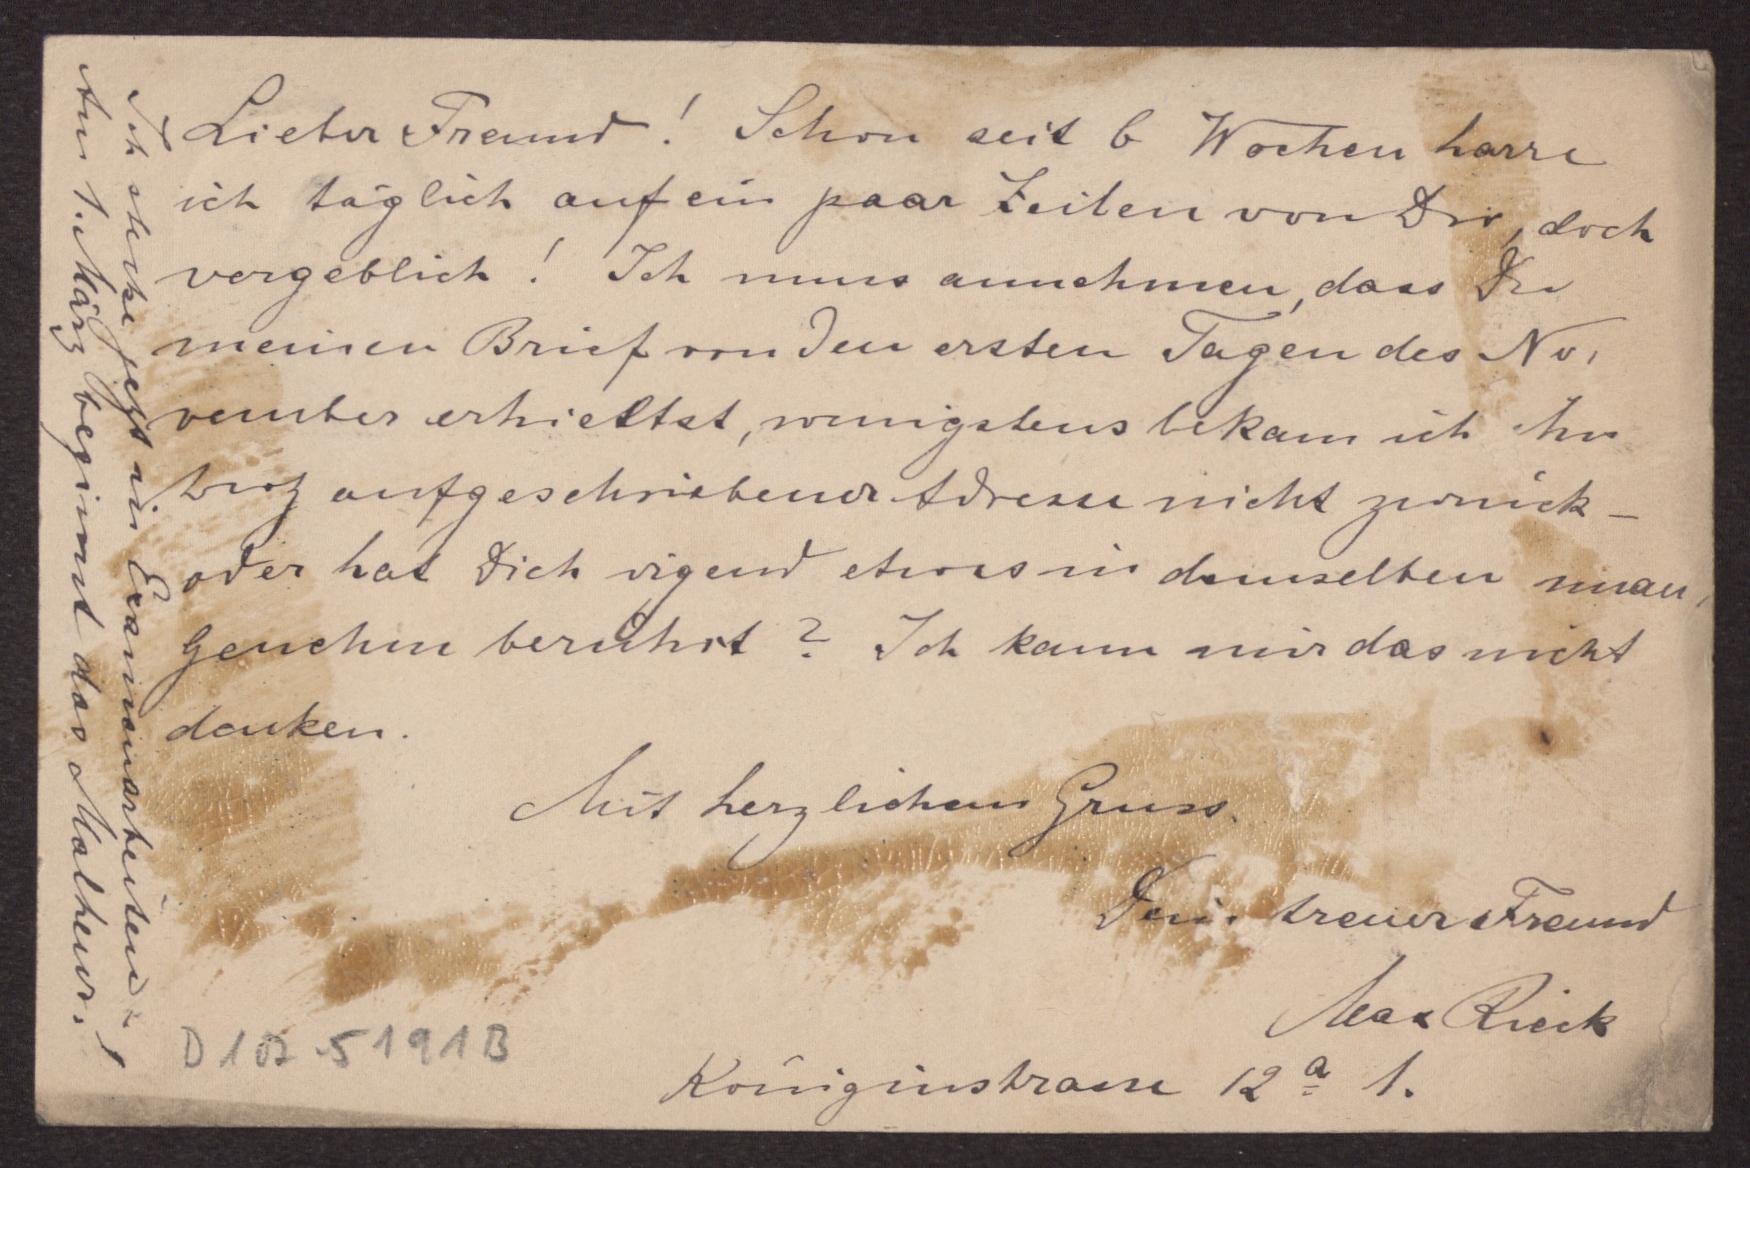 Lieber Freund! Schon seit 6 Wochen harre
ich täglich auf ein paar Zeilen von Dir, doch
vergeblich! Ich muss annehmen, dass Du
meinen Brief von den ersten Tagen des No-
vember erhieltst, wenigstens bekam ich ihn
trotz aufgeschriebener Adresse nicht zurück –
oder hat Dich irgend etwas in demselben unan-
genehm berührt? Ich kann mir das nicht
denken.
Mit herzlichem Gruss.
Dein treuer Freund
Max Rieck
Königinstrasse 12 a 1.
Ich stecke jetzt in Examenarbeiten –
Am 1. März beginnt das Malheur!
D 107 5191B